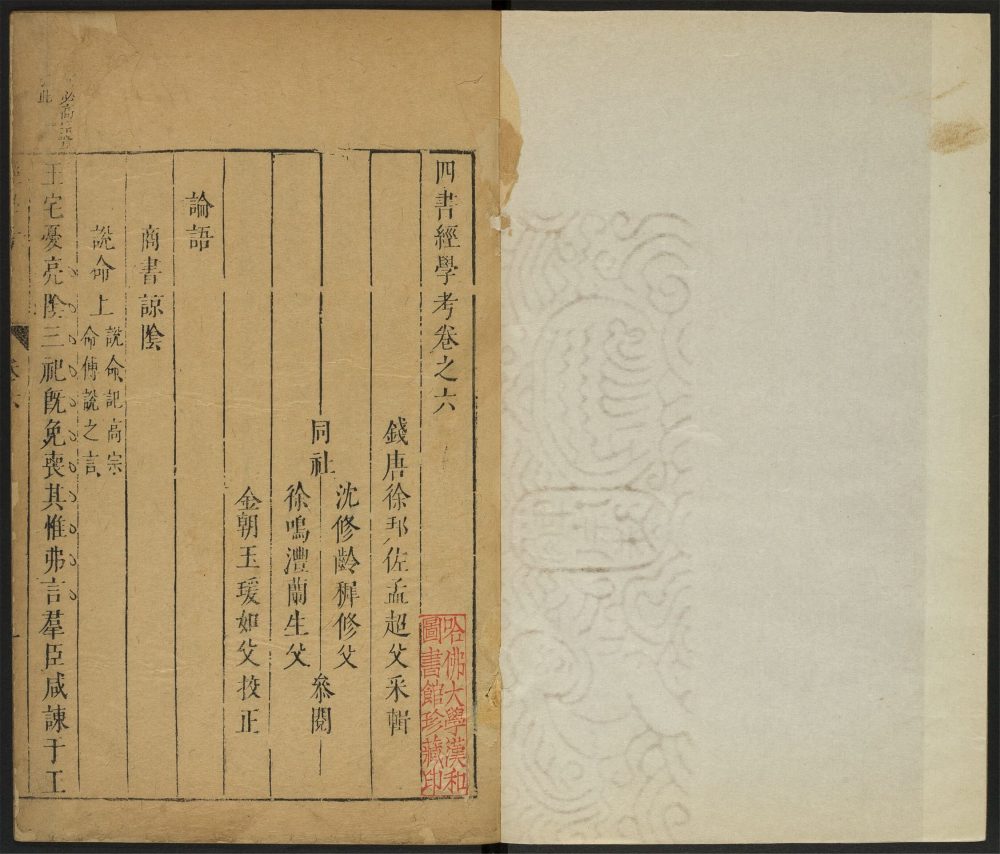 四書經學考卷之六
錢唐徐邦佐孟超父采輯
沈修齡穉修父
同社
參閱
徐鳴灃蘭生父
金朝玉瑗如父挍正
論語
商書諒陰
說命上
說命記高宗
命傅說之言
王宅憂亮陰三祀旣免喪其惟弗言羣臣咸諫于王
哈佛大學漢和
圖書館珍藏印